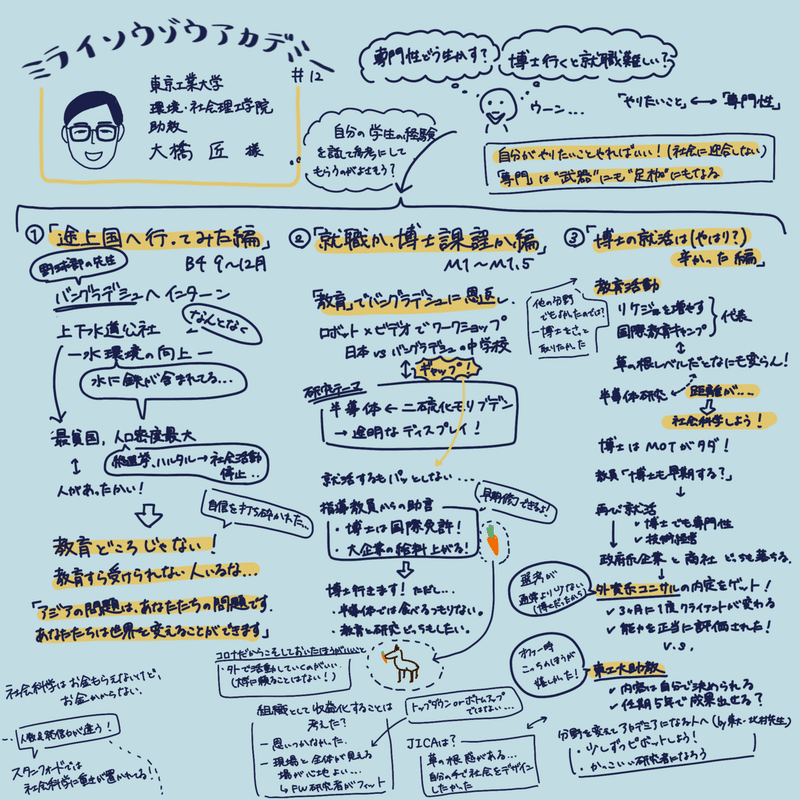 ミライソウゾウアカデミー
#12
東京工業大学
環境・社会理工学院
助教
大橋 匠 様
専門性どう生かす?
博士行くと就職難しい?
ウーン...
「やりたいこと」⟷「専門性」
自分の学生の経験
を話して参考にして
もらうのがよさそう?
自分がやりたいことやればいい!(社会に迎合しない)
「専門」は"武器"にも"足枷"にもなる
①「途上国へ行ってみた編」
B4 9〜12月
野球部の先生
バングラデシュへインターン
なんとなく
上下水道公社
ー水環境の向上ー
水に鉄が含まれてる...
最貧国,人口密度最大
総選挙、ハルタル→社会活動
停止..
人があったかい!
自信を打ち砕かれた...
教育どころじゃない!
教育すら受けられない人いるな...
「アジアの問題は、あなたたちの問題です.
あなたたちは世界を変えることができます」
②「就職か、博士課程か編」
M1〜M1.5
「教育」でバングラデシュに恩返し.
ロボット×ビデオでワークショップ
日本 vs バングラデシュの中学校
ギャップ!
研究テーマ
半導体 ← 二硫化モリブデン
→ 透明なディスプレイ!
就活するもパッとしない...
指導教員からの助言
早期修了できるよ!
・博士は国際免許!
・大企業の給料上がる!
博士行きます!ただし...
・半導体では食べるつもりない。
・教育と研究どっちもしたい。
③「博士の就活は(やはり?)
辛かった編」
教育活動
他の分野
でもよかったのでは?
ー博士をさっと
取りたかった
リケジョを増やす
国際教育キャンプ
代表
草の根レベルだとなにも変らん!
半導体研究
距離が...
社会科学しよう!
博士はMOTがタダ!
教員「博士も早期する?」
再び就活
・博士でも専門性
・技術経営
政府系企業と商社 どっちも落ちる.
選考が
通常より少ない
(博士だったから)
外資系コンサルの内定をゲット!
✓3ヶ月に1度クライアントが変わる
✓能力を正当に評価された!
v.s.
オファー時
こっちのほうが
嬉しかった!
東工大助教
✓内容は自分で決められる
✓任期5年で成果出せる?
分野を変えてアカデミアになる人へ(by東大・北村先生)
・少しずつピボットしよう!
・かっこいい研究者になろう
コロナだからこそしておいたほうがいいこと
・外で活動していくのがいい.
(大学に頼ることはない!)
社会科学はお金もらえないけど、
お金かからない.
人数も発信力が違う!
スタンフォードでは
社会科学に重き が置かれてる!!
組織として収益化することは
考えた?
ー思いつかなかった.
ー現場と全体が見える
場が心地よい...
↳FW研究者がフィット
トップダウンorボトムアップ
ではない...
JICAは?
草の根感がある...
自分の手で社会をデザイン
したかった